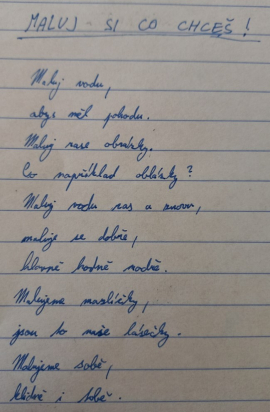 MALUJ SI CO CHCEŠ!
Maluj vodu,
abys měl pohodu.
Maluj zase obrázky.
Co například oblázky?
Maluj vodu zas a znovu,
maluje se dobře,
hlavně hodně modře.
Malujeme mazlíčky,
jsou to naše lásečky.
Malujeme sobě,
klidně i tobě.